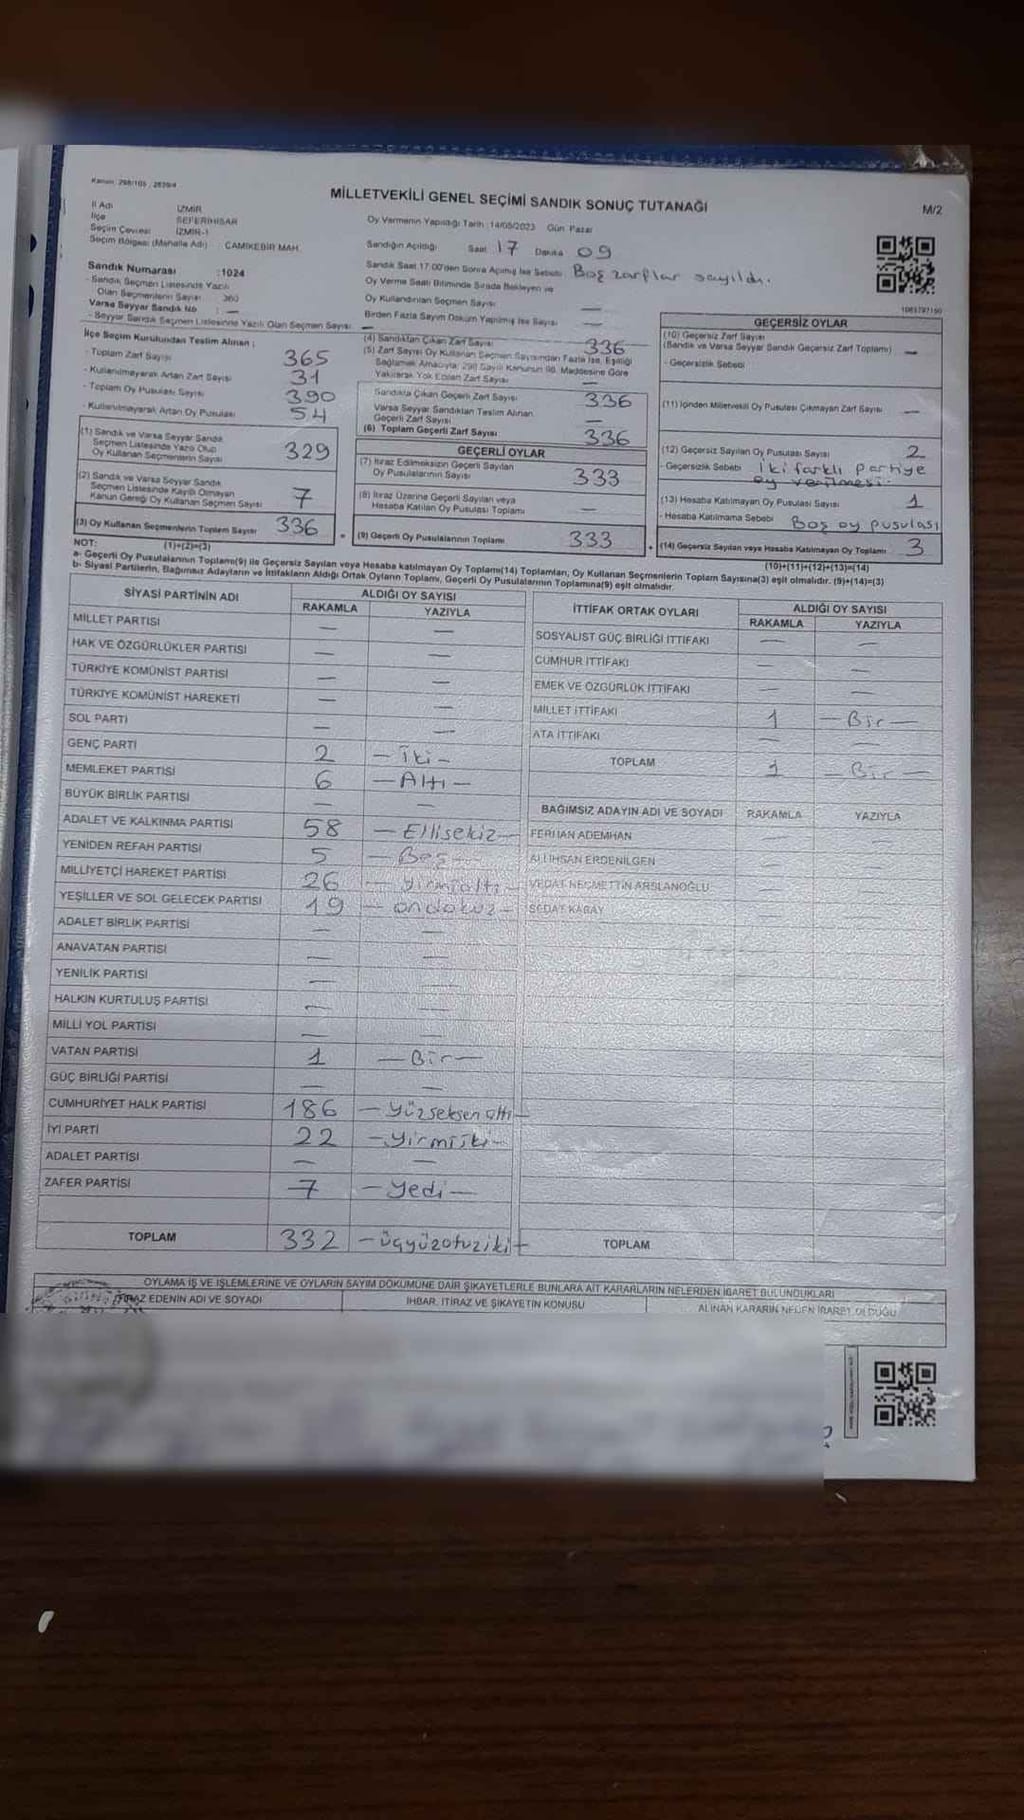 Kanun: 298/105 , 2839/4
MİLLETVEKİLİ GENEL SEÇİMİ SANDIK SONUÇ TUTANAĞI
M/2
İl Adı İZMİR
İlçe SEFERİHİSAR
Seçim Çevresi İZMİR-1
Seçim Bölgesi (Mahalle Adı) CAMİKEBİR MAH.
Oy Vermenin Yapıldığı Tarih :14/05/2023 Gün Pazar
Sandığın Açıldığı Saat 17 Dakika 09
Sandık Saat 17:00'den Sonra Açılmış İse Sebebi Boş zarflar sayıldı.
Oy Verme Saati Bitiminde Sırada Bekleyen ve
Oy Kullandırılan Seçmen Sayısı —
Birden Fazla Sayım Döküm Yapılmış İse Sayısı —
Sandık Numarası :1024
- Sandık Seçmen Listesinde Yazılı
Olan Seçmenlerin Sayısı : 360
Varsa Seyyar Sandık No : —
- Seyyar Sandık Seçmen Listesinde Yazılı Olan Seçmen Sayısı —
İlçe Seçim Kurulundan Teslim Alınan :
- Toplam Zarf Sayısı 365
- Kullanılmayarak Artan Zarf Sayısı 31
- Toplam Oy Pusulası Sayısı 390
- Kullanılmayarak Artan Oy Pusulası 54
(1) Sandık ve Varsa Seyyar Sandık
Seçmen Listesinde Yazılı Olup
Oy Kullanan Seçmenlerin Sayısı 329
(2) Sandık ve Varsa Seyyar Sandık
Seçmen Listesinde Kayıtlı Olmayan
Kanun Gereği Oy Kullanan Seçmen Sayısı 7
(3) Oy Kullanan Seçmenlerin Toplam Sayısı 336
(1)+(2)=(3)
(4) Sandıktan Çıkan Zarf Sayısı 336
(5) Zarf Sayısı Oy Kullanan Seçmen Sayısından Fazla İse, Eşitliği
Sağlamak Amacıyla; 298 Sayılı Kanunun 98. Maddesine Göre
Yakılarak Yok Edilen Zarf Sayısı —
Sandıkta Çıkan Geçerli Zarf Sayısı 336
Varsa Seyyar Sandıktan Teslim Alınan
Geçerli Zarf Sayısı —
(6) Toplam Geçerli Zarf Sayısı 336
GEÇERLİ OYLAR
(7) İtiraz Edilmeksizin Geçerli Sayılan
Oy Pusulalarının Sayısı 333
(8) İtiraz Üzerine Geçerli Sayılan veya
Hesaba Katılan Oy Pusulası Toplamı —
= (9) Geçerli Oy Pusulalarının Toplamı 333
1083797150
GEÇERSİZ OYLAR
(10) Geçersiz Zarf Sayısı
(Sandık ve Varsa Seyyar Sandık Geçersiz Zarf Toplamı) —
- Geçersizlik Sebebi
(11) İçinden Milletvekili Oy Pusulası Çıkmayan Zarf Sayısı —
(12) Geçersiz Sayılan Oy Pusulası Sayısı 2
- Geçersizlik Sebebi İki farklı partiye
oy verilmesi.
(13) Hesaba Katılmayan Oy Pusulası Sayısı 1
- Hesaba Katılmama Sebebi Boş oy pusulası
+ (14) Geçersiz Sayılan veya Hesaba Katılmayan Oy Toplamı 3
(10)+(11)+(12)+(13)=(14)
NOT:
a- Geçerli Oy Pusulalarının Toplamı(9) ile Geçersiz Sayılan veya Hesaba katılmayan Oy Toplamı(14) Toplamları, Oy Kullanan Seçmenlerin Toplam Sayısına(3) eşit olmalıdır. (9)+(14)=(3)
b- Siyasi Partilerin, Bağımsız Adayların ve İttifakların Aldığı Ortak Oyların Toplamı, Geçerli Oy Pusulalarının Toplamına(9) eşit olmalıdır.
SİYASİ PARTİNİN ADI ALDIĞI OY SAYISI
RAKAMLA YAZIYLA
MİLLET PARTİSİ — —
HAK VE ÖZGÜRLÜKLER PARTİSİ — —
TÜRKİYE KOMÜNİST PARTİSİ — —
TÜRKİYE KOMÜNİST HAREKETİ — —
SOL PARTİ — —
GENÇ PARTİ 2 — İki —
MEMLEKET PARTİSİ 6 — Altı —
BÜYÜK BİRLİK PARTİSİ — —
ADALET VE KALKINMA PARTİSİ 58 — Ellisekiz —
YENİDEN REFAH PARTİSİ 5 — Beş —
MİLLİYETÇİ HAREKET PARTİSİ 26 — yirmialtı —
YEŞİLLER VE SOL GELECEK PARTİSİ 19 — ondokuz —
ADALET BİRLİK PARTİSİ — —
ANAVATAN PARTİSİ — —
YENİLİK PARTİSİ — —
HALKIN KURTULUŞ PARTİSİ — —
MİLLİ YOL PARTİSİ — —
VATAN PARTİSİ 1 — Bir —
GÜÇ BİRLİĞİ PARTİSİ — —
CUMHURİYET HALK PARTİSİ 186 — yüzseksenaltı —
İYİ PARTİ 22 — yirmiiki —
ADALET PARTİSİ — —
ZAFER PARTİSİ 7 — yedi —
TOPLAM 332 — üçyüzotuziki —
İTTİFAK ORTAK OYLARI ALDIĞI OY SAYISI
RAKAMLA YAZIYLA
SOSYALİST GÜÇ BİRLİĞİ İTTİFAKI — —
CUMHUR İTTİFAKI — —
EMEK VE ÖZGÜRLÜK İTTİFAKI —
MİLLET İTTİFAKI 1 — Bir —
ATA İTTİFAKI — —
TOPLAM 1 — Bir —
BAĞIMSIZ ADAYIN ADI VE SOYADI RAKAMLA YAZIYLA
FERHAN ADEMHAN — —
ALİ İHSAN ERDENİLGEN
VEDAT NECMETTİN ARSLANOĞLU
SEDAT KABAY
TOPLAM
OYLAMA İŞ VE İŞLEMLERİNE VE OYLARIN SAYIM DÖKÜMÜNE DAİR ŞİKAYETLERLE BUNLARA AİT KARARLARIN NELERDEN İBARET BULUNDUKLARI
İTİRAZ EDENİN ADI VE SOYADI İHBAR, İTİRAZ VE ŞİKAYETİN KONUSU ALINAN KARARIN NEDEN İBARET OLDUĞU